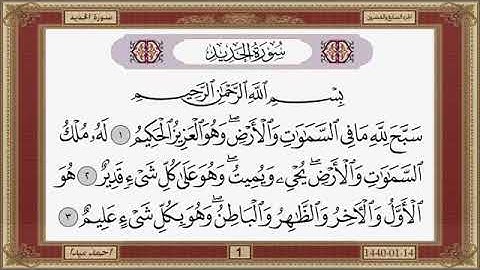 سورة الحديد
الجزء السابع والعشرين
سُورَةُ الحَدِيد
بِسْمِ اللَّهِ الرَّحْمَٰنِ الرَّحِيمِ
سَبَّحَ لِلَّهِ مَا فِي السَّمَٰوَٰتِ وَالْأَرْضِ ۖ وَهُوَ الْعَزِيزُ الْحَكِيمُ ١ لَهُۥ مُلْكُ
السَّمَٰوَٰتِ وَالْأَرْضِ ۖ يُحْيِۦ وَيُمِيتُ ۖ وَهُوَ عَلَىٰ كُلِّ شَيْءٍ قَدِيرٌ ٢ هُوَ
الْأَوَّلُ وَالْآخِرُ وَالظَّاهِرُ وَالْبَاطِنُ ۖ وَهُوَ بِكُلِّ شَيْءٍ عَلِيمٌ ٣
1
1440-01-14